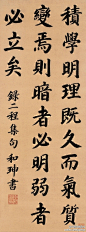 積學明理既久而氣質
變焉則暗者必明弱者
必立矣
錄二程集句 和珅書